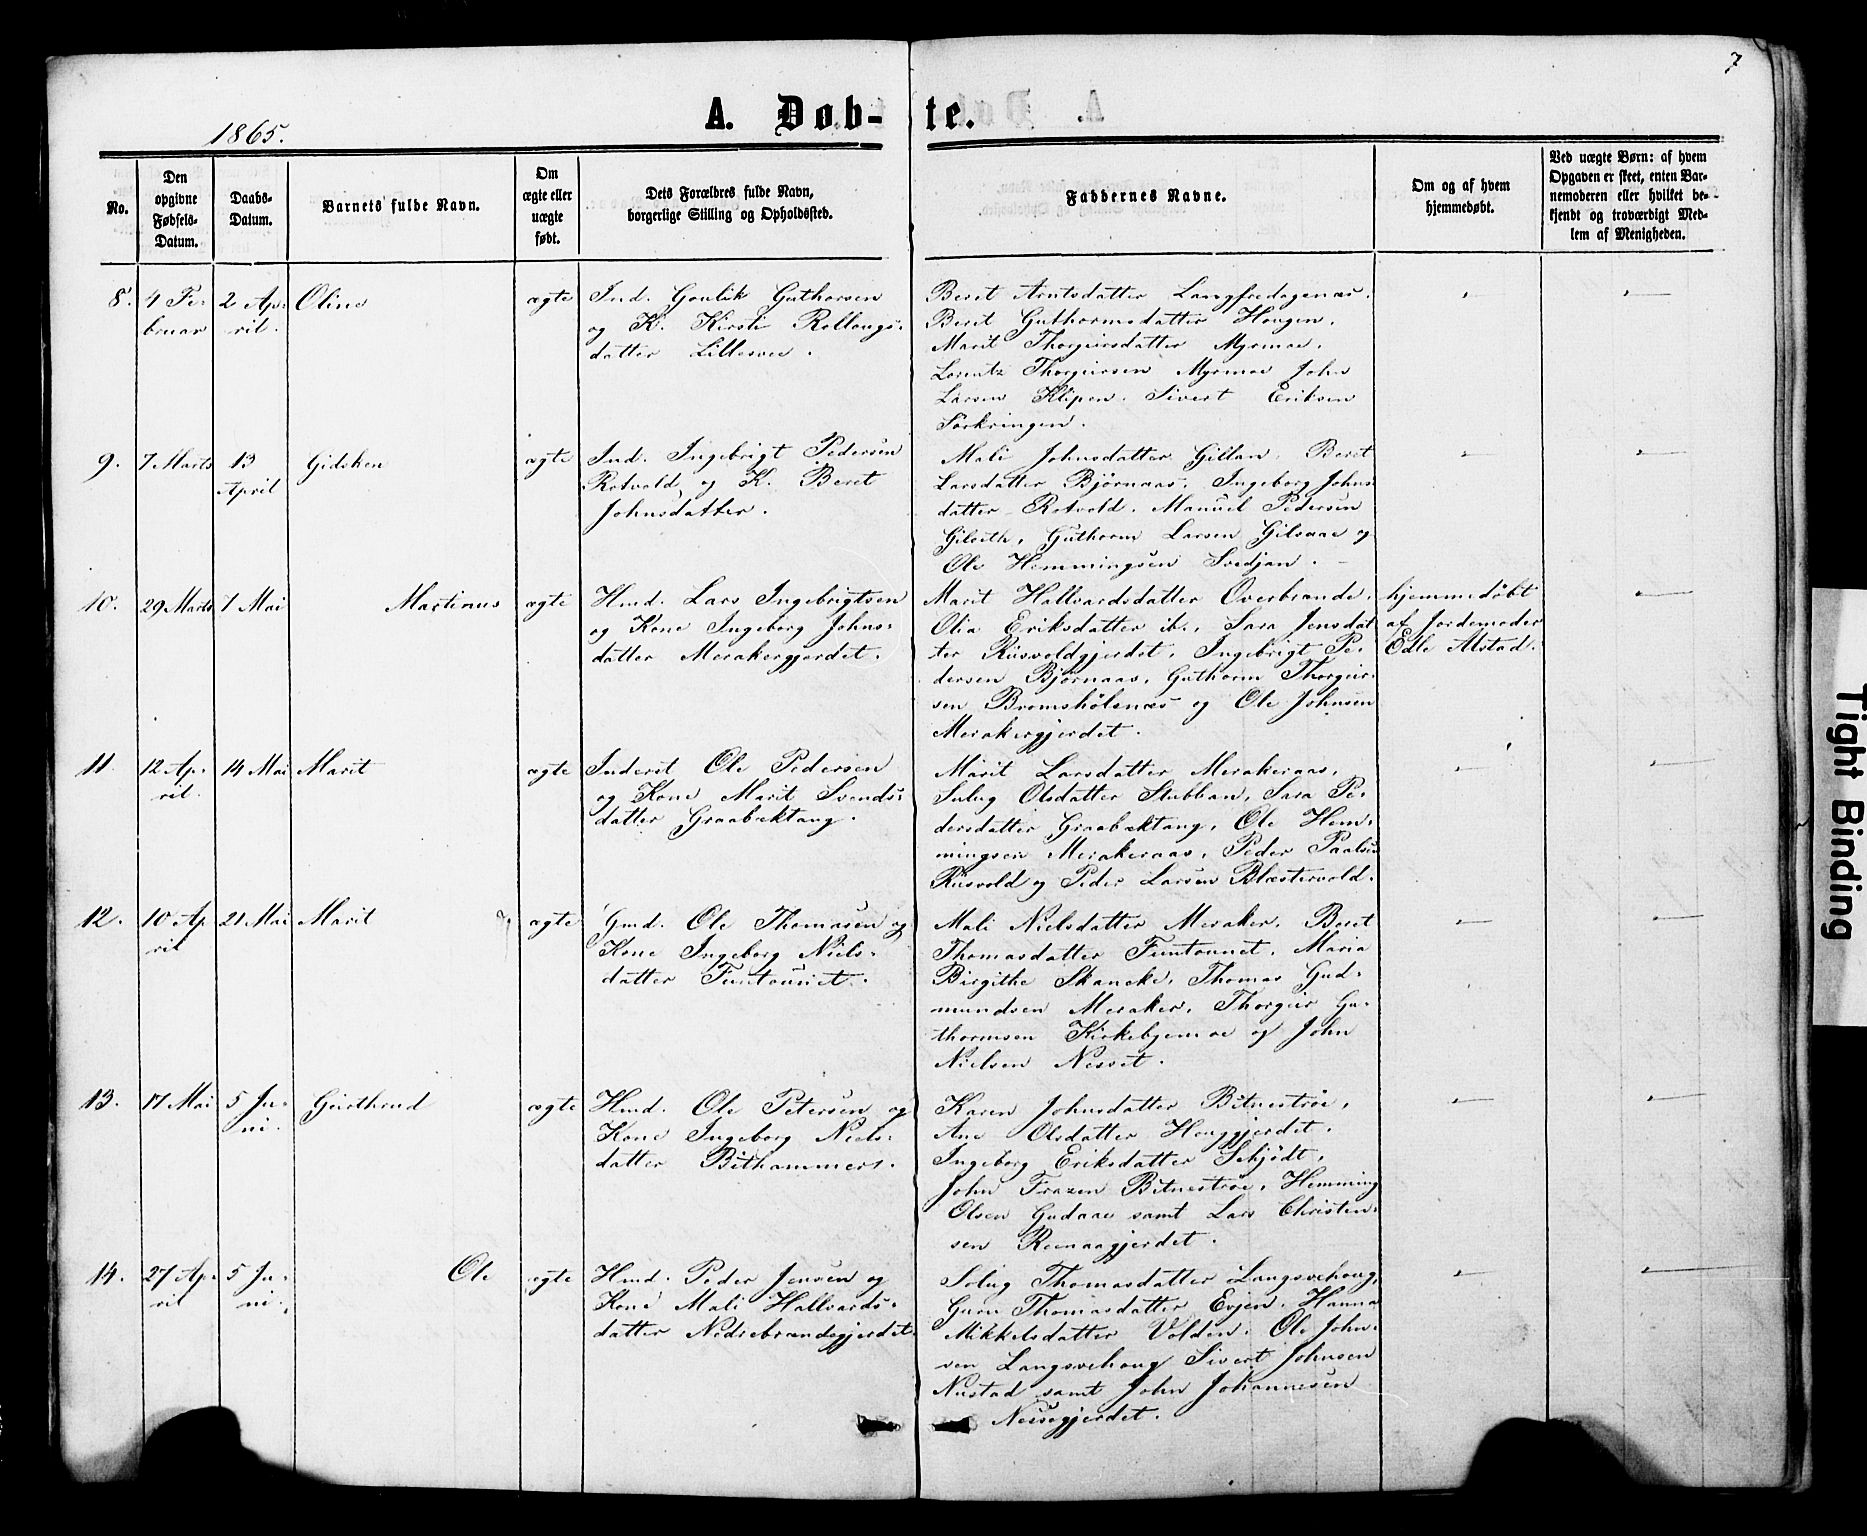 7
A. Døb-te.
1865.
No.
Den opgivne Fødsels-Datum.
Daabs-Datum.
Barnets fulde Navn.
Om ægte eller uægte født.
Dets Forældres fulde Navn, borgerlige Stilling og Opholdssted.
Faddernes Navne.
Om og af hvem hjemmedøbt.
Ved uægte Børn: af hvem Opgaven er skeet, enten Barnemoderen eller hvilket bekjendt og troværdigt Medlem af Menigheden.
8. 4 Fe- 2 Ap- Oline ægte Ind. Goulik Guthorsen
bruar ril. og K. Kirsti Rollougs-
datter Lillesvee.
Beret Arntsdatter Langfredagenæs.
Berit Guthormsdatter Hougen.
Marit Thorgeirsdatter Myrmoe.
Lorentz Thorgeirsen Myrmoe John
Larsen Klipen. Sivert Eriksen
Sørkringen.
9. 7 Marts 13 Gidsken ægte Ind. Ingebrigt Pedersen
April Rotvold og K. Beret
Johnsdatter.
Mali Johnsdatter Gillan. Beret
Larsdatter Bjørnaas. Ingeborg Johns
datter Rotvold. Manuel Pedersen
Guthorm Larsen Gilsaae og
Ole Hemmingsen Svedjan.
10. 29 Marts 7 Mai Martinus ægte Hmd. Lars Ingebrigtsen
og Kone Ingeborg Johns-
datter Merakergjerdet.
Marit Hallvardsdatter Overbrænde.
Olia Eriksdatter ib., Sara Jensdat
ter Rüsvoldgjerdet, Ingebrigt Pe-
dersen Bjørnaas, Guthorm Thorgeir-
sen Bromshölsnæs og Ole Johnsen
Merakergjerdet.
hjemmedøbt
af Jordemoder
Edle Alstad.
11. 12 Ap- 14 Mai Marit ægte Inderst Ole Pedersen
ril. og Kone Marit Svends-
datter Graabæktang.
Marit Larsdatter Merakeraas,
Sulug Olsdatter Stubban, Sara Pe-
dersdatter Graabæktang, Ole Hem-
mingsen Merakeraas, Peder Paalsen
Rüsvold og Peder Larsen Blæstervold.
12. 10 Ap 21 Mai Marit ægte Gmd. Ole Thomasen og
ril Kone Ingeborg Niels-
datter Funtaunet.
Mali Nielsdatter Meraker. Beret
Thomasdatter Funtaunet, Maria
Birgithe Skancke, Thomas Gud-
mundsen Meraker, Thorgeir Gu-
thormsen Kirkebymoe og John
Nielsen Nesset.
13. 17 Mai 5 Ju- Gurthrud ægte Hmd. Ole Petersen og
ni. Kone Ingeborg Niels-
datter Bithammers.
Karen Johnsdatter Bitnestrøe,
Ane Olsdatter Houggjerdet.
Ingeborg Eriksdatter Schjødt,
John Frazen Bitnestrøe. Hemming
Olsen Gudaae samt Lars Christen-
sen Remaagjerdet.
14. 27 Ap- 5 Ju- Ole ægte Hmd. Peder Jensen og
ril ni. Kone Mali Hallvards-
datter Nedrebrændegjerdet.
Solug Thomasdatter Langsvehoug,
Guru Thomasdatter Evjen. Hanna
Mikkelsdatter Volden. Ole John-
sen Langsvehoug Sivert Johnsen
Nustad samt John Johannesen
Neisegjerdet.
Tight Binding